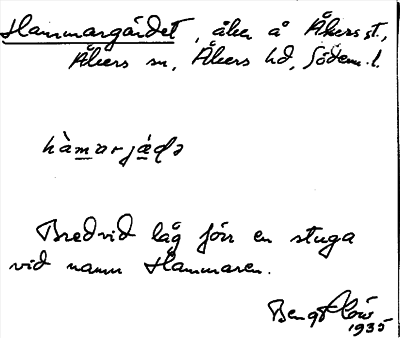 Hammargärdet, åker å Åkers st.,
Åkers sn, Åkers hd, Södem. l.
hàmarjáḍə
Bredvid låg förr en stuga
vid namn Hammaren.
Bengt
1935